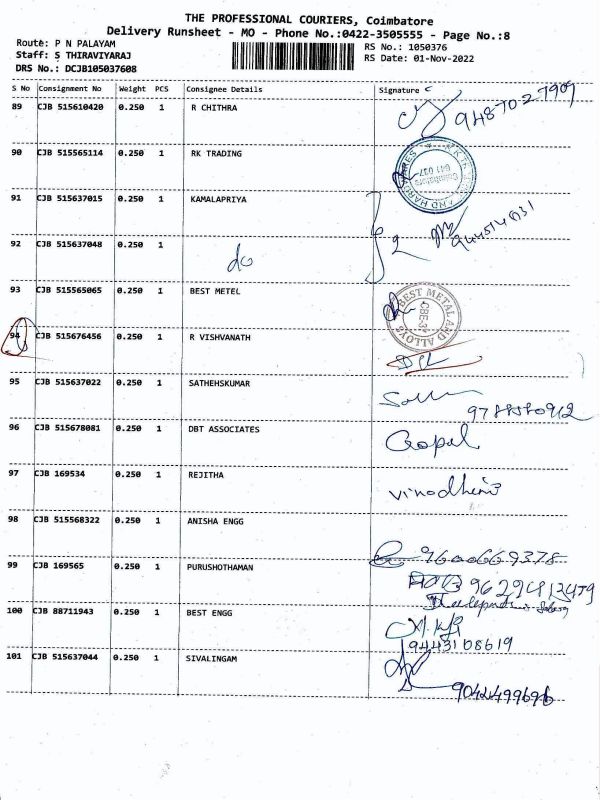 THE PROFESSIONAL COURIERS, Coimbatore
Delivery Runsheet - MO - Phone No.:0422-3505555 - Page No.:8
Route: P N PALAYAM
RS No.: 1050376
Staff: S THIRAVIYARAJ
RS Date: 01-Nov-2022
DRS No.: DCJB105037608
S No Consignment No Weight PCS Consignee Details Signature
89 CJB 515610420 0.250 1 R CHITHRA
94870 27909
90 CJB 515565114 0.250 1 RK TRADING
641 037
91 CJB 515637015 0.250 1 KAMALAPRIYA
92 CJB 515637048 0.250 1 do
93 CJB 515565065 0.250 1 BEST METEL
BEST METAL AND ALLOYS
94 CJB 515676456 0.250 1 R VISHVANATH
95 CJB 515637022 0.250 1 SATHEHSKUMAR
96 CJB 515678081 0.250 1 DBT ASSOCIATES Gopal
97 CJB 169534 0.250 1 REJITHA vinodhini
98 CJB 515568322 0.250 1 ANISHA ENGG
9600669378
99 CJB 169565 0.250 1 PURUSHOTHAMAN
100 CJB 88711943 0.250 1 BEST ENGG
9443108619
101 CJB 515637044 0.250 1 SIVALINGAM
9042499696